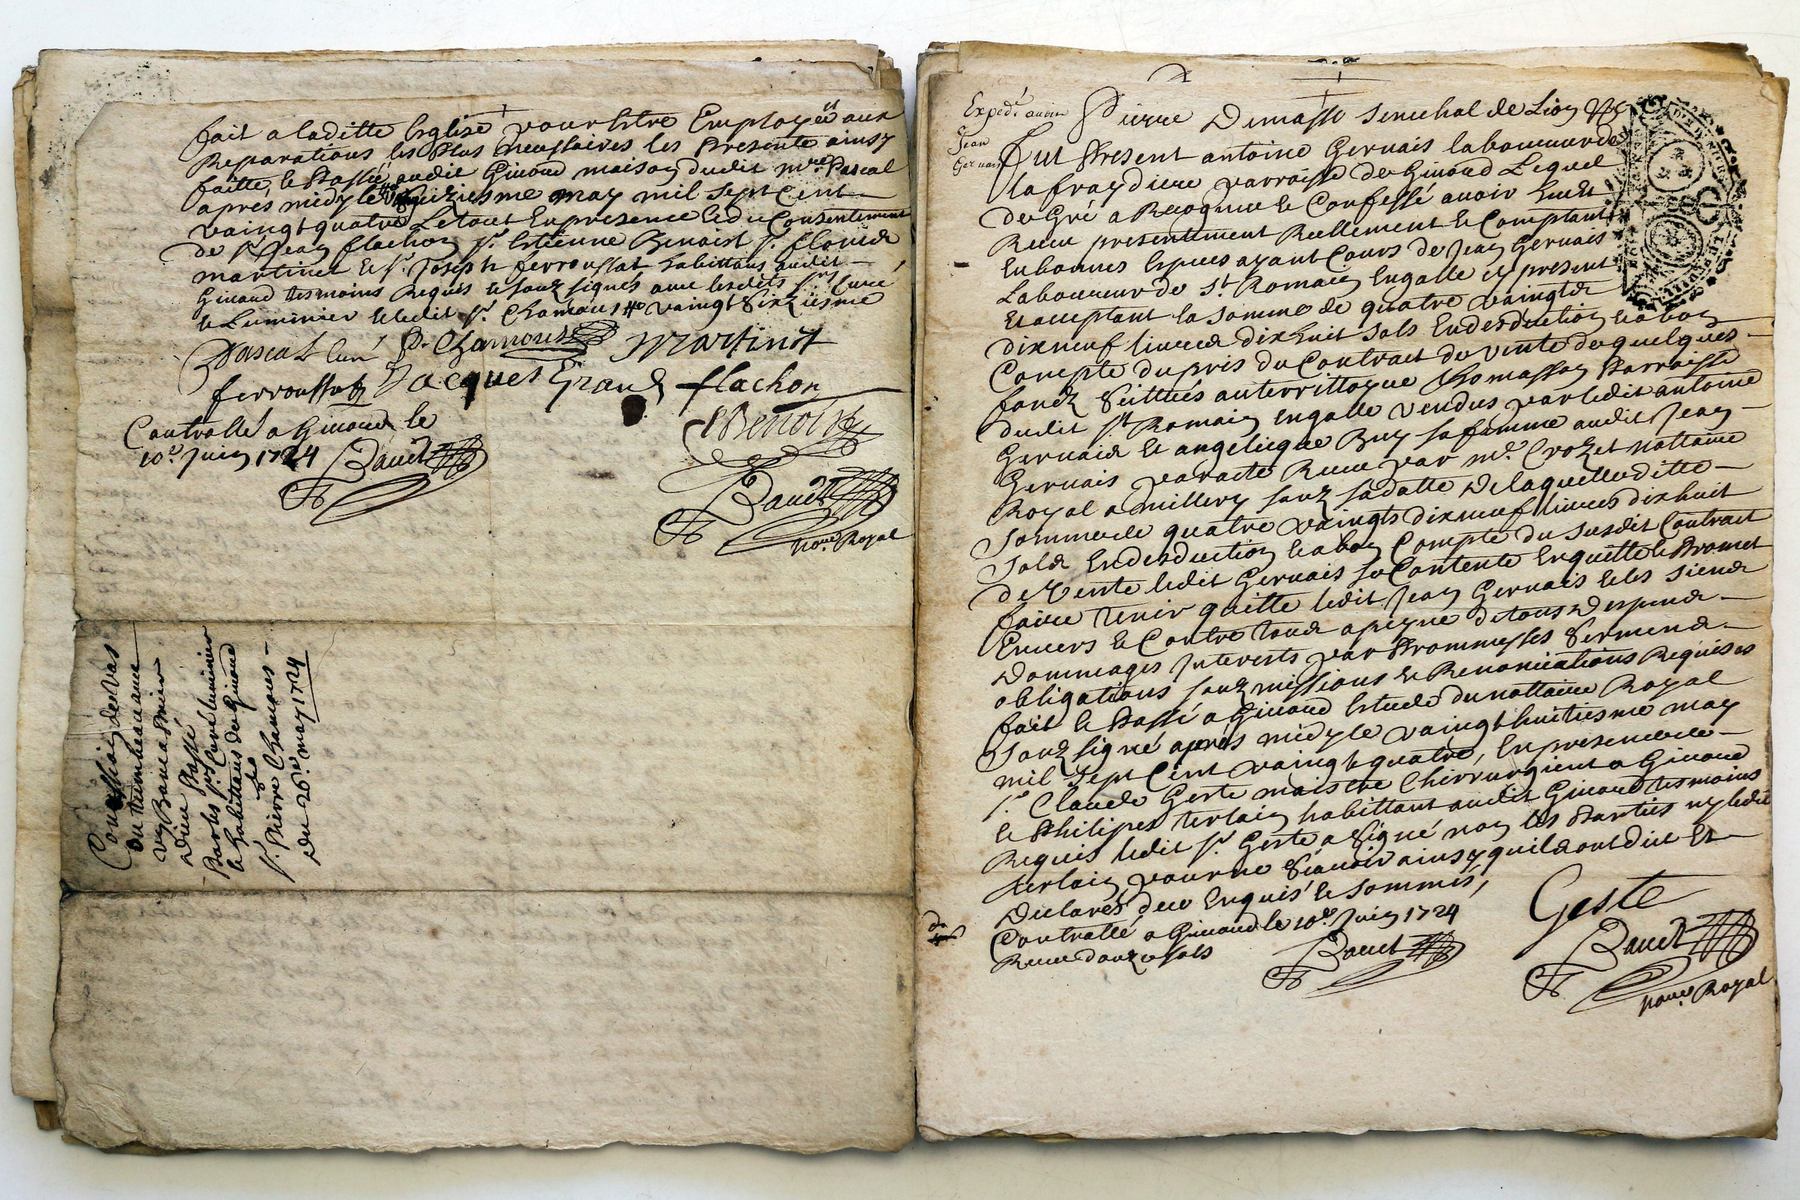 fait a laditte Esglise pour Estre Employéés aux
Reparations les Plus neussaires les presente ainsy
faitte et Passé audit Giuord maison dudit mre. Pascal
apres midy le siziesme may mil sept cent
vaingt quatre Le tout En presence et du Consentement
de sr. Jean flachon sr. Estienne Benoist sr. floris
martinet et sr. Joseph ferroussat habittans audit
Giuord tesmoins Requis et sous signés auec lesdits srs. Curé
et Luminier et ledit sr. Chamous vaingt sixziesme
Pascal Curé P. Chamous Martinot
ferroussat Jacques Grand flachon
Benoist
Controllé a Giuord le
10e. Juin 1724 Bauet
Bauet
nore. Royal
Concession de vas
ou tumbeau auec
vn Banc a Prier
Dieu Passé
Par les srs. Curé luminier
et habittans de Giuord
a
sr. Pierre Chamous
Du 26e. may 1724
Expedé. audit
Jean
Geruais
Pierre Demasso Senechal de Lion
fut Present antoine Geruais laboureur de
la fraydiere parroisse de Giuord Lequel
de Gré a Recognu et Confessé auoir Eu et
Receu presentement Reellement et Comptant
En bonnes Especes ayant Cours de Jean Geruais
Laboureur de St. Romain En galle Cy present
et acceptant la somme de quatre vaingts
dix neuf liures dix huit sols En desduction et a bon
Compte du pris du Contract de vente de quelques
fondz scittués au territtoyre Thomasson Parroisse
dudit St. Romain En galle vendus par ledit antoine
Geruais et angelicque Buy sa femme audit Jean
Geruais par acte Receu par me. Crozet nottaire
Royal a millery souz sa datte De laquelle ditte
somme de quatre vaingts dix neuf liures dix huit
sols En desduction et a bon Compte du susdit Contract
de vente ledit Geruais se Contente En quitte et Promet
faire tenir quitte ledit Jean Geruais et les siens
Enuers et Contre tous a peyne de tous Despens
Dommages Interests par Prommesses serments
obligations souzmissions et Renonciations Requises
fait et Passé a Giuord Estude du nottaire Royal
souz signé apres midy le vaingt huitiesme may
mil sept Cent vaingt quatre, En presence de
sr. Claude Geste maistre Chirurgient a Giuord
et Philipes terlain habittant audit Giuord tesmoins
Requis ledit sr. Geste a signé non les Parties ny ledit
terlain pour ne sçauoir ainsy quils ont dit et
Declarés de ce Enquis et sommés,
Controllé a Giuord le 10e. Juin 1724
Receu douze sols
Geste
Bauet
Bauet
nore. Royal